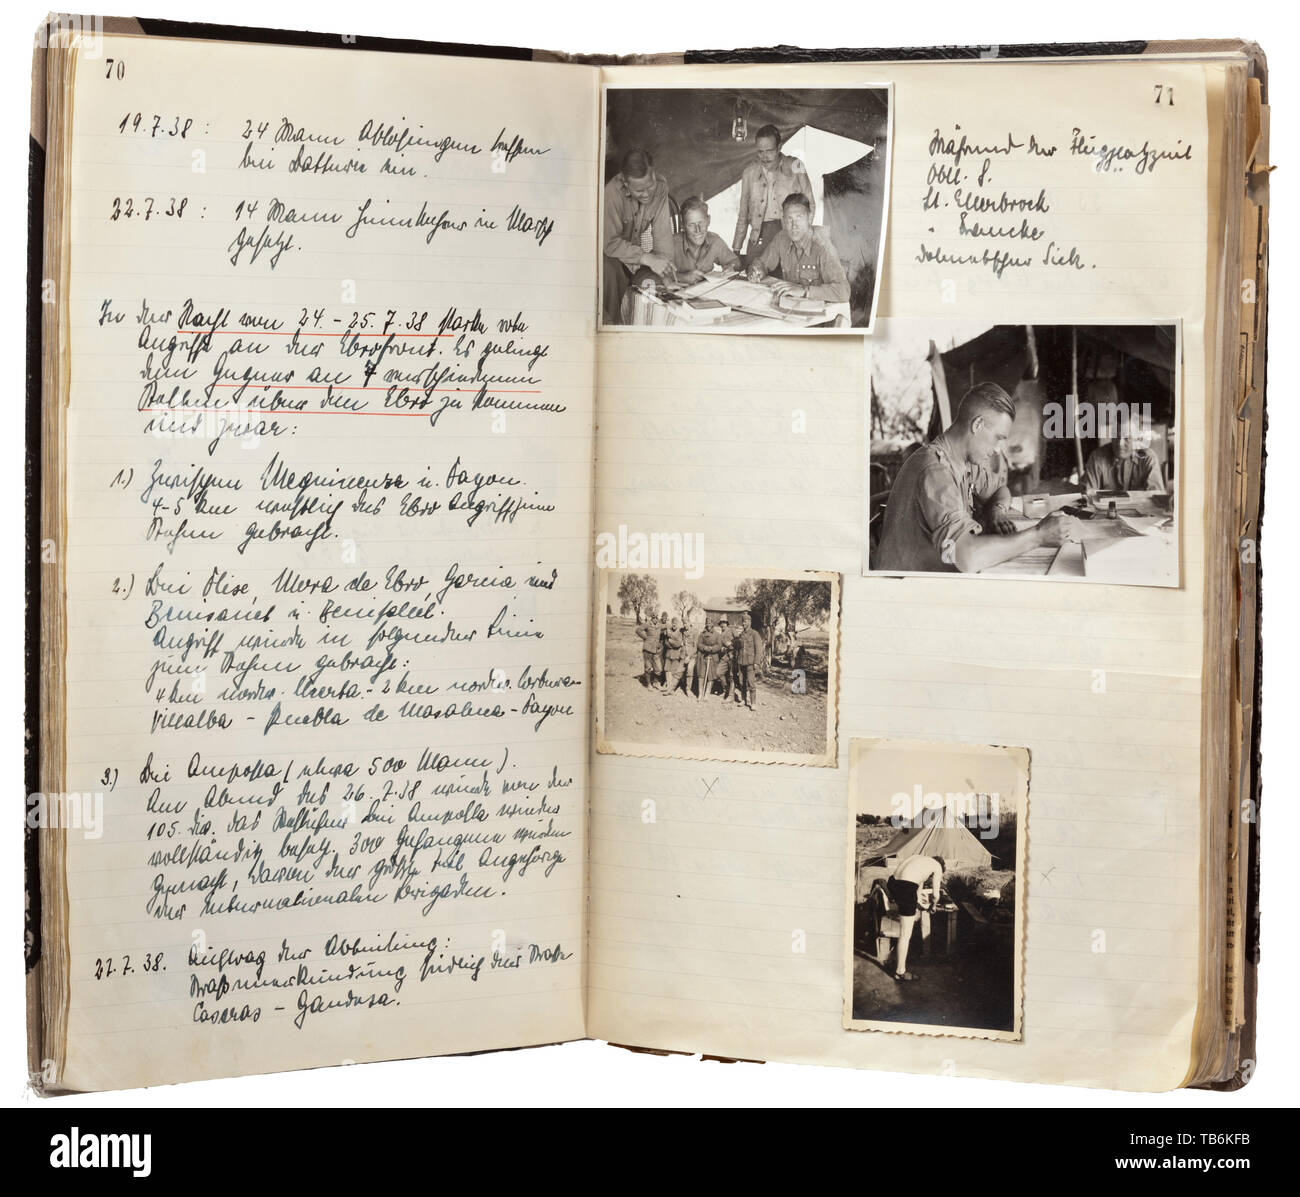 70
19.7.38 : 24 Mann Ablösungen treffen
bei Batterie ein.
22.7.38 : 14 Mann Heimkehrer in Marsch
gesetzt.
In der Nacht vom 24. - 25.7.38 starke rote
Angriffe an der Ebrofront. Es gelingt
dem Gegner an 7 verschiedenen
Stellen über den Ebro zu kommen
und zwar:
1.) Zwischen Mequinenza u. Fayon.
4-5 km westlich des Ebro Angriff zum
Stehen gebracht.
2.) Bei Flise, Mora de Ebro, Garcia und
Benisanet u. Benifallet.
Angriff wurde in folgender Linie
zum Stehen gebracht:
4 km nordw. - 2 km nordw. Corbera -
Villalba - Puebla de Masaluca - Fayon
3.) Bei Ampolla (etwa 500 Mann).
Am Abend des 26.7.38 wurde von der
105. Div. das Westufer bei Ampolla wieder
vollständig besetzt. 300 Gefangene wurden
gemacht, davon der größte Teil Angehörige
der Internationalen Brigaden.
27.7.38. Auftrag der Abteilung:
Straßenerkundung südlich der Straße
Caseras - Gandesa.
71
Während der Flugplatzzeit
Oblt. G.
Lt. Ellerbrock
" Francke
Dolmetscher Sick.
alamy
Image ID: TB6KFB
www.alamy.com